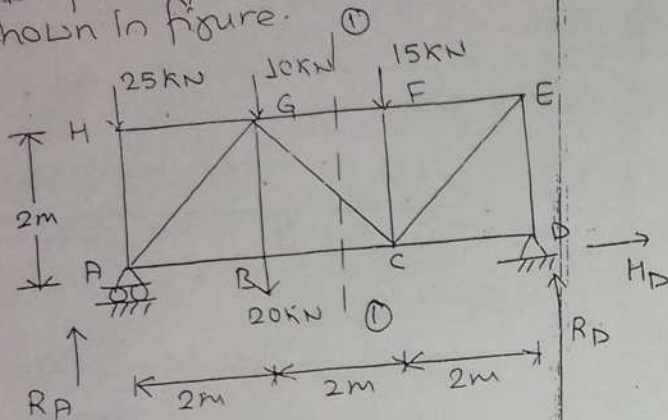 shown in figure.
①
25KN
10KN
15KN
H
G
F
E
2m
A
B
C
D
H_D
20KN
①
R_A
2m
2m
2m
R_D